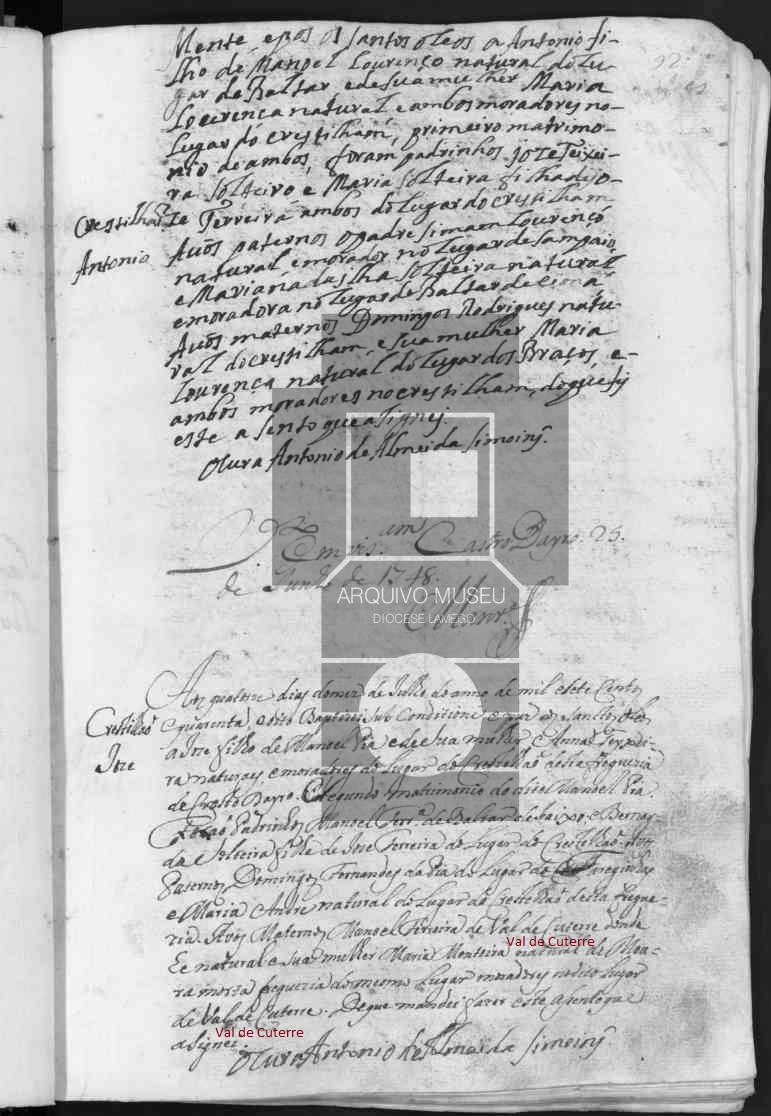 Mente, e pos os santos oleos a Antonio fi-
lho de Manoel Lourenço natural do Lu-
gar de Baltar e de sua mulher Maria
Lourença natural e ambos moradores no
Lugar do crestilham, primeiro matrimo-
nio de ambos, foram padrinhos joze Teixei-
ra solteiro e Maria solteira filha de jo-
Crestilham
ze Ferreira ambos do lugar do crestilham
Antonio
Avos paternos o padre simam Lourenço
natural e morador no lugar de sampaio
e Mariana da silha solteira natural
e moradora no lugar de Baltar de cima
Avos maternos Domingos Rodrigues natu-
ral do crestilham, e sua mulher Maria
Lourença natural do lugar dos Braços, e
ambos moradores no crestilham, do que fis
este asento que asignei.
O Cura Antonio de Almeida
Castro Dayro. 25.
de Junho de 1748.
ARQUIVO MUSEU
DIOCESE LAMEGO
Aos quatorze dias do mez de Julho do anno de mil e sete Centos
Crestilhaõ
e quarenta, e oito Baptizei Sub Conditione e puz os Santos Oleos
Joze
a Joze filho de Manoel Dia e de sua mulher Anna Ferrei-
ra naturaes, e moradores do Lugar do Crestilhaõ desta freguezia
de Crasto Dayro. Segundo matrimonio do dito Manoel Dia.
Foraõ Padrinhos Manoel Ferr.ª de Baltar de baixo, e Bernar-
da solteira filha de Joze Ferreira do Lugar do Crestilhaõ. Avos
Paternos Domingos Fernandes da Dia do Lugar de Fareginhas
e Maria Andre natural do Lugar do Crestilhaõ desta fregue-
zia. Avos Maternos Manoel Ferreira de Val de Cuterre donde
Val de Cuterre
he natural e sua mulher Maria Monteira natural de Mou-
ra morta freguezia do mesmo Lugar moradores no dito Lugar
de Val de Cuterre. De que mandei fazer este asento que
Val de Cuterre
asignei.
O Cura Antonio de Almeida